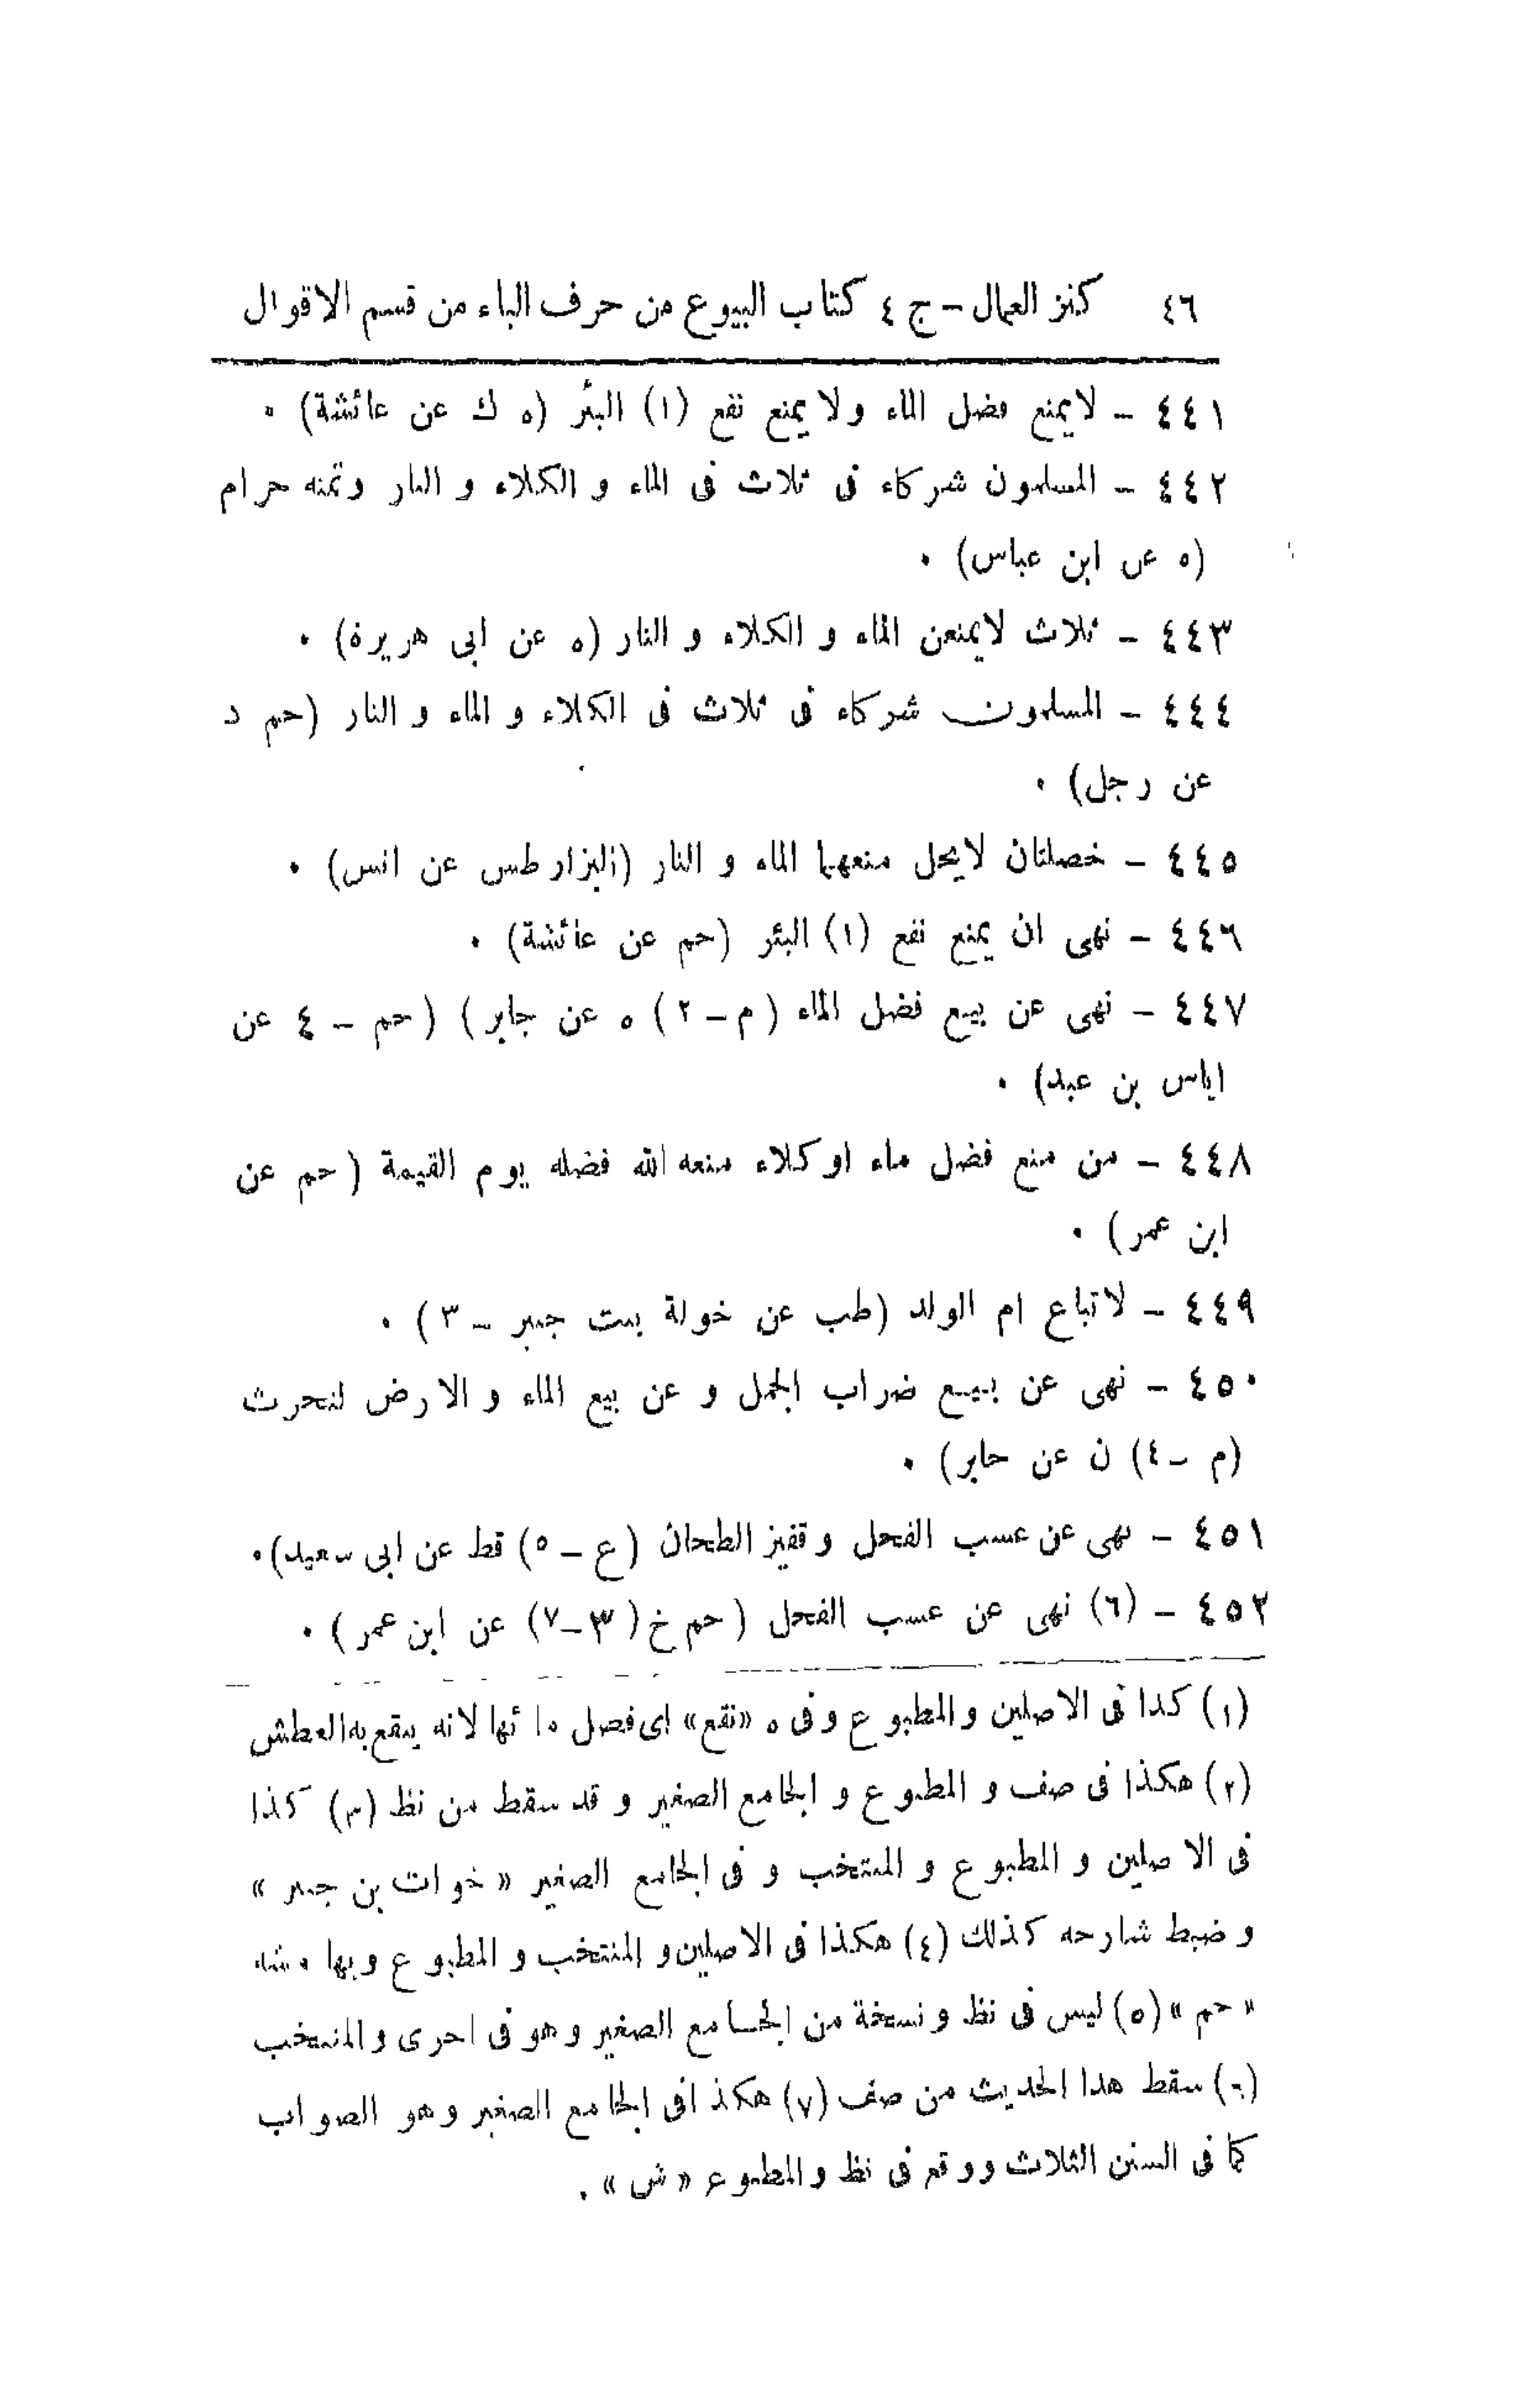 ٤٦ كنز العمال - ج ٤ كتاب البيوع من حرف الباء من قسم الاقوال
٤٤١ - لا يمنع فضل الماء ولا يمنع نفع (١) البئر (ه ك عن عائشة) ٠
٤٤٢ - المسلمون شركاء فى ثلاث فى الماء و الكلاء و النار وثمنه حرام
(ه عن ابن عباس) ٠
٤٤٣ - ثلاث لايمنعن الماء و الكلاء و النار (ه عن ابى هريرة) ٠
٤٤٤ - المسلمون شركاء فى ثلاث فى الكلاء و الماء و النار (حم د
عن رجل) ٠
٤٤٥ - خصلتان لايحل منعهما الماء و النار (البزار طس عن انس) ٠
٤٤٦ - نهى ان يمنع نفع (١) البئر (حم عن عائشة) ٠
٤٤٧ - نهى عن بيع فضل الماء (م - ٢) ه عن جابر) (حم - ٤ عن
اياس بن عبد) ٠
٤٤٨ - من منع فضل ماء او كلاء منعه الله فضله يوم القيمة (حم عن
ابن عمر) ٠
٤٤٩ - لا تباع ام الولد (طب عن خولة بنت جبير - ٣) ٠
٤٥٠ - نهى عن بيع ضراب الجمل و عن بيع الماء و الارض لتحرث
(م - ٤) ن عن جابر) ٠
٤٥١ - نهى عن عسب الفحل و قفيز الطحان (ع - ٥) قط عن ابى سعيد) ٠
٤٥٢ - (٦) نهى عن عسب الفحل (حم خ (٣ - ٧) عن ابن عمر) ٠
(١) كذا فى الاصلين والمطبوع وفى ه «نقع» اى فضل مائها لانه ينقع به العطش
(٢) هكذا فى صف و المطبوع و الجامع الصغير و قد سقط من نظ (٣) كذا
فى الاصلين و المطبوع و المنتخب و فى الجامع الصغير «خوات بن جبير»
و ضبط شارحه كذلك (٤) هكذا فى الاصلين و المنتخب و المطبوع وبهامشه
«حم» (٥) ليس فى نظ و نسخة من الجامع الصغير وهو فى اخرى و المنتخب
(٦) سقط هذا الحديث من صف (٧) هكذا فى الجامع الصغير وهو الصواب
كما فى السنن الثلاث ووقع فى نظ والمطبوع «ش» ٠